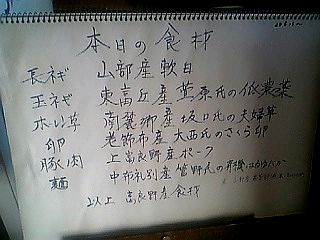 本日の食材
長ネギ 山部産軟白
玉ネギ 東富丘産菅原氏の低農薬
ホレン草 南麓郷産坂口氏の夫婦草
卵 老節布産大西氏のさくら卵
豚肉 上富良野産ポーク
麺 中布礼別産菅野氏の有機
以上 富良野産食材